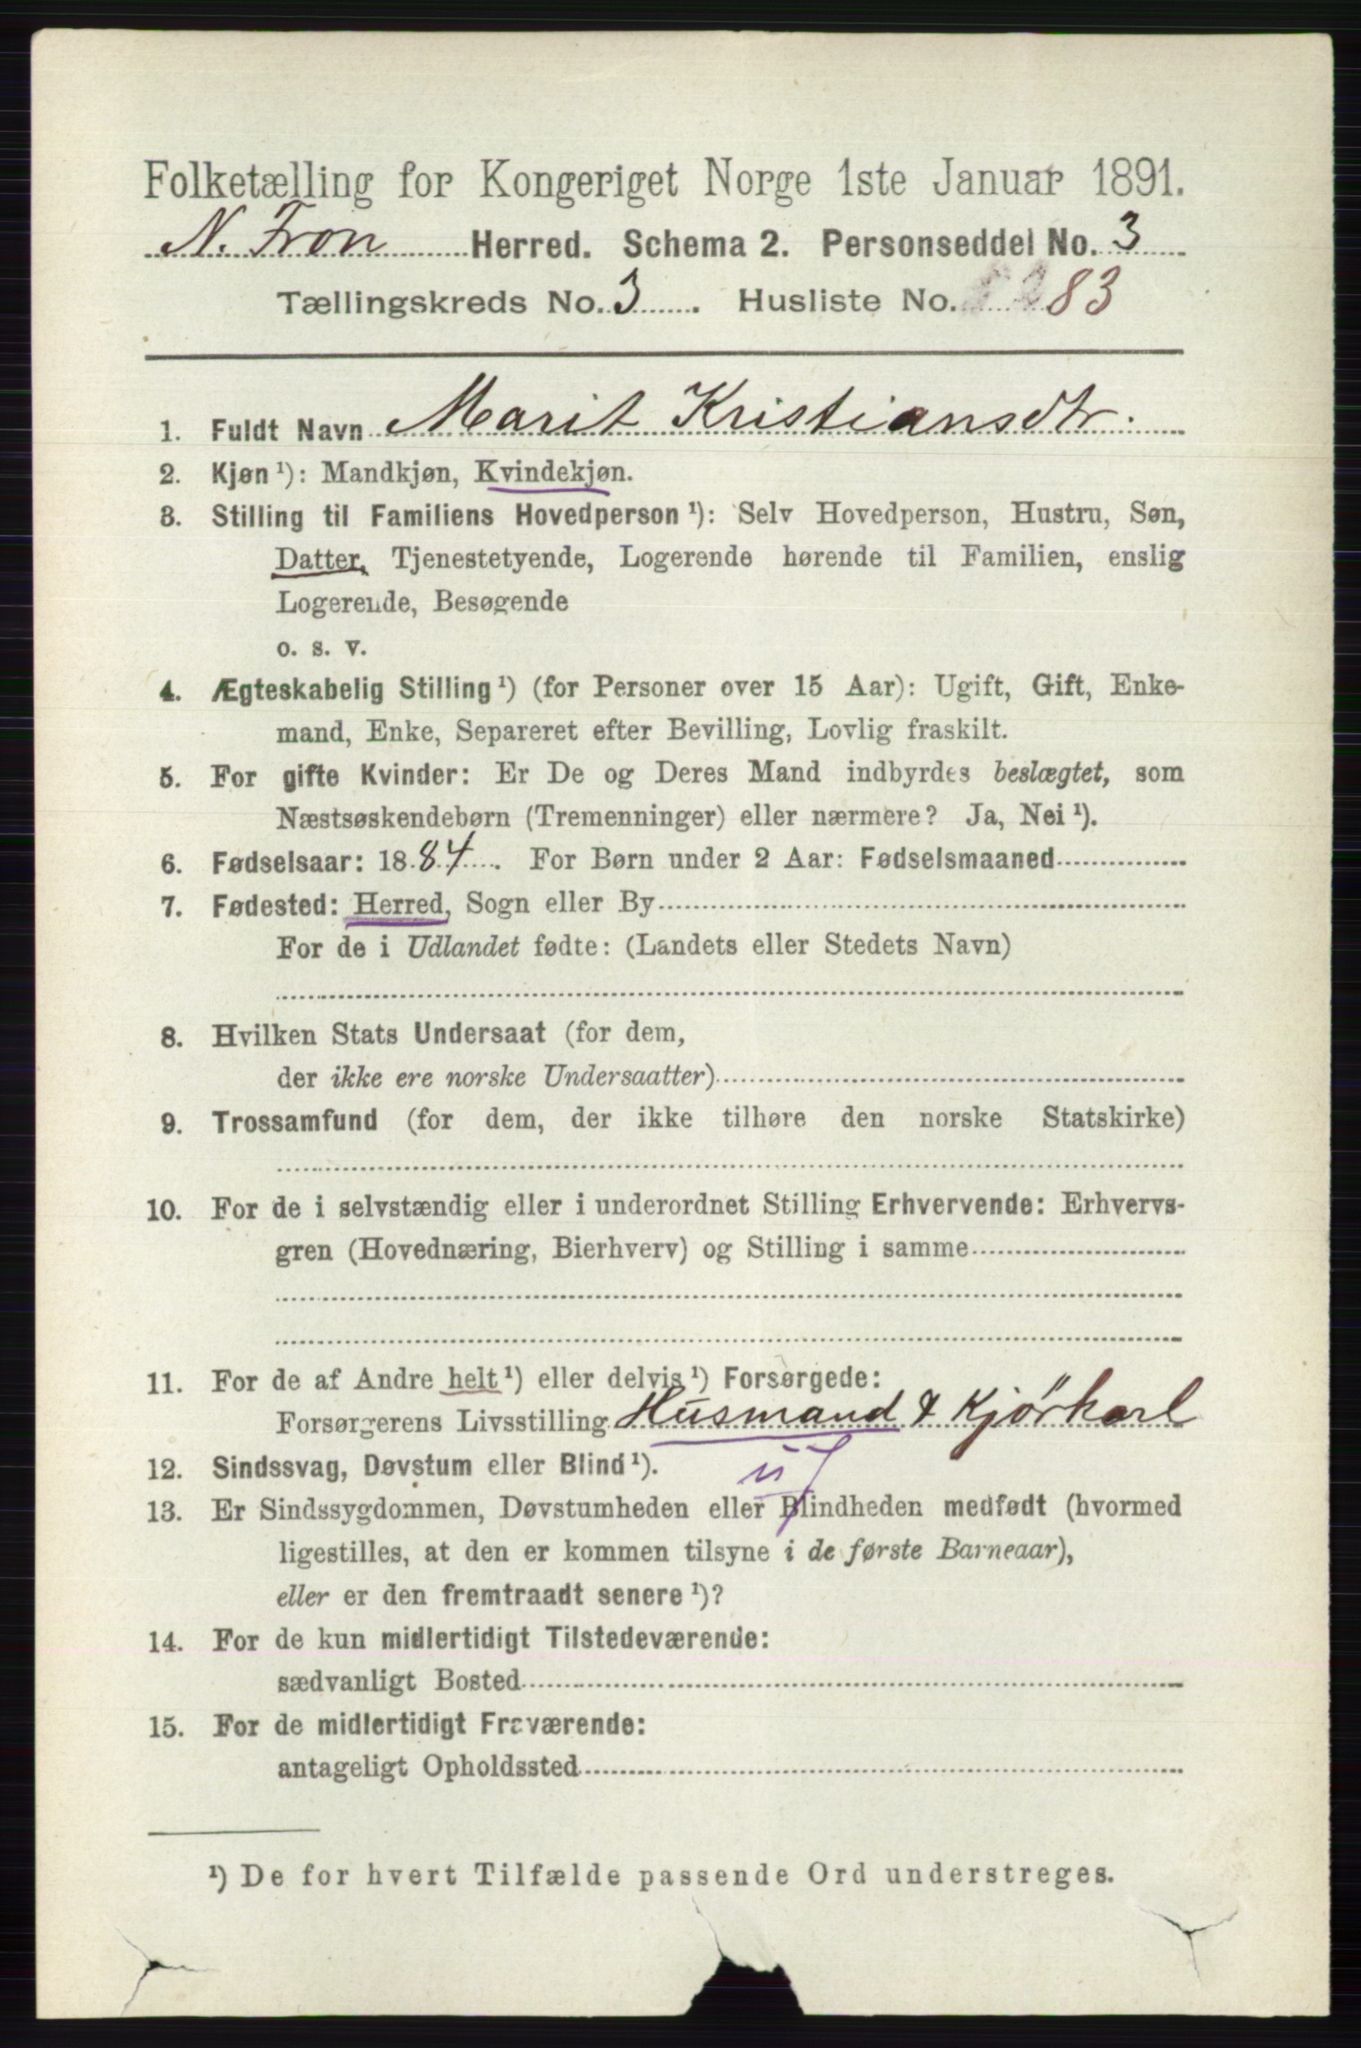 Folketælling for Kongeriget Norge 1ste Januar 1891.
N. Fron Herred. Schema 2. Personseddel No. 3
Tællingskreds No. 3. Husliste No. 83
1. Fuldt Navn Marit Kristiansdtr.
2. Kjøn ¹): Mandkjøn, Kvindekjøn.
3. Stilling til Familiens Hovedperson ¹): Selv Hovedperson, Hustru, Søn,
Datter, Tjenestetyende, Logerende hørende til Familien, enslig
Logerende, Besøgende
o. s. v.
4. Ægteskabelig Stilling ¹) (for Personer over 15 Aar): Ugift, Gift, Enke-
mand, Enke, Separeret efter Bevilling, Lovlig fraskilt.
5. For gifte Kvinder: Er De og Deres Mand indbyrdes beslægtet, som
Næstsøskendebørn (Tremenninger) eller nærmere? Ja, Nei ¹).
6. Fødselsaar: 1884. For Børn under 2 Aar: Fødselsmaaned
7. Fødested: Herred, Sogn eller By
For de i Udlandet fødte: (Landets eller Stedets Navn)
8. Hvilken Stats Undersaat (for dem,
der ikke ere norske Undersaatter)
9. Trossamfund (for dem, der ikke tilhøre den norske Statskirke)
10. For de i selvstændig eller i underordnet Stilling Erhvervende: Erhvervs-
gren (Hovednæring, Bierhverv) og Stilling i samme
11. For de af Andre helt ¹) eller delvis ¹) Forsørgede:
Forsørgerens Livsstilling Husmand & Kjörkarl
12. Sindssvag, Døvstum eller Blind ¹).
13. Er Sindssygdommen, Døvstumheden eller Blindheden medfødt (hvormed
ligestilles, at den er kommen tilsyne i de første Barneaar),
eller er den fremtraadt senere ¹)?
14. For de kun midlertidigt Tilstedeværende:
sædvanligt Bosted
15. For de midlertidigt Fraværende:
antageligt Opholdssted
¹) De for hvert Tilfælde passende Ord understreges.